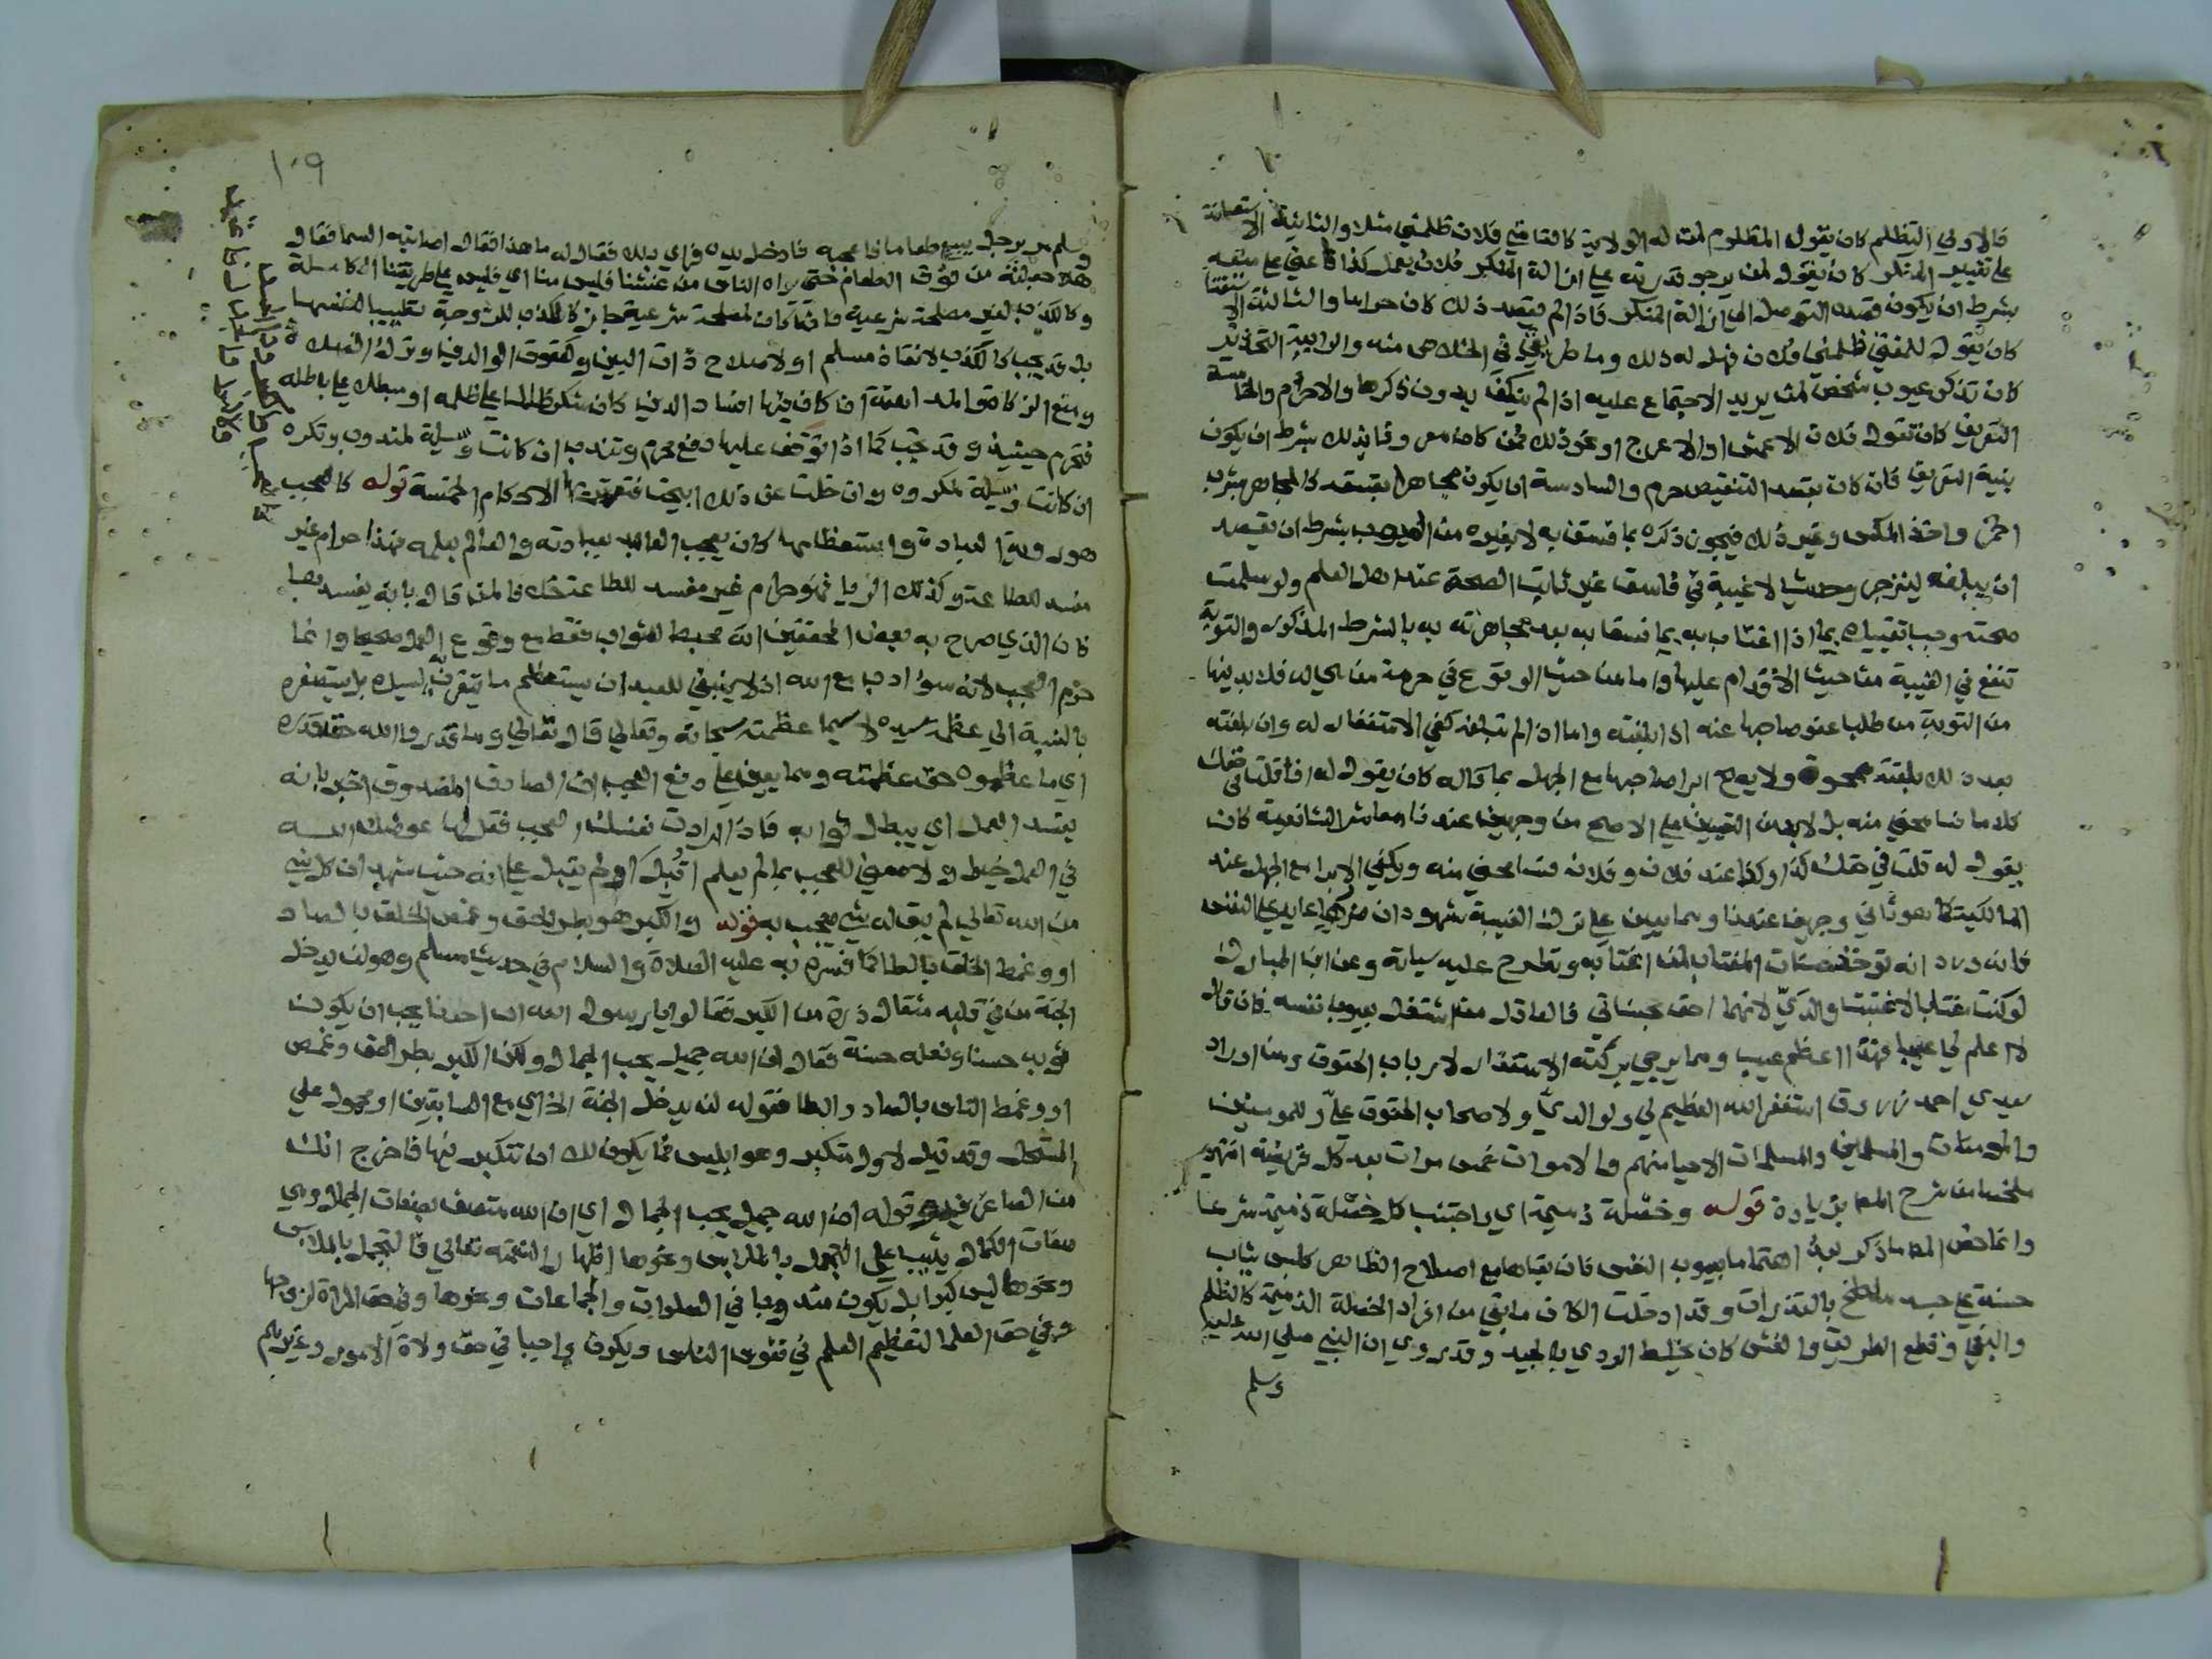 فالاولى التظلم كان يقول المظلوم لمن له الولاية كالقاضي فلان ظلمني مثلا والثانية الاستعانة
على تغيير المنكر كان يقول لمن يرجو قدرته على ازالة المنكر فلان يعمل كذا فاعني على منعه
بشرط ان يكون قصده التوصل الى ازالة المنكر فاذا لم يقصد ذلك كان حراما والثالثة الاستفتا
كان يقول للمفتي ظلمني فلان فهل له ذلك وما طريقي في الخلاص منه والرابعة التحذير
كان تذكر عيوب شخص لمن يريد الاجتماع عليه اذا لم ينكف بدون ذكرها والا حرم والخامسة
التعريف كان تقول فلان الاعمش او الاعرج او نحو ذلك فمن كان معروفا بذلك بشرط ان يكون
بنية التعريف فان كان بقصد التنقيص حرم والسادسة ان يكون مجاهرا بفسقه كالمجاهر بشرب
الخمر واخذ المكس وغير ذلك فيجوز ذكره بما فسق به لا بغيره من العيوب بشرط ان يقصد
ان يبلغه لينزجر وحديث لا غيبة في فاسق غير ثابت الصحة عند اهل العلم ولو سلمت
صحته وجب تقييده بما اذا اغتابه بما فسق به بعد مجاهرته به بالشرط المذكور والتوبة
تنفع في الغيبة من حيث الاقدام عليها واما من حيث الوقوع في حرمة من هي له فلا بد فيها
من التوبة من طلب عفو صاحبها عنه اذا بلغته واما اذا لم تبلغه كفى الاستغفار له وان بلغته
بعد ذلك بلغته ممحوة ولا يصح ابرا صاحبها مع الجهل بما قاله كان يقول له انا قلت في حقك
كلاما فسامحني منه بل لا بد من التعيين على الاصح من وجهين عندنا معاشر الشافعية كان
يقول له قلت في حقك كذا وكذا عند فلان وفلان فسامحني منه ويكفي الابرا مع الجهل عند
المالكية كما هو ثاني وجهين عندنا ومما يعين على ترك الغيبة شهود ان ضررها عايد على النفس
فانه ورد انه توخذ حسنات المغتاب لمن اغتابه وتطرح عليه سياته وعن ابن المبارك
لو كنت مغتابا لاغتبت والديّ لانهما احق بحسناتي فالعاقل من اشتغل بعيوب نفسه فان قال
لا اعلم لي عيبا فهذا اعظم عيب ومما يرجى بركته الاستغفار لارباب الحقوق ومن اوراد
سيدي احمد زروق استغفر الله العظيم لي ولوالديّ ولاصحاب الحقوق عليّ وللمومنين
والمومنات والمسلمين والمسلمات الاحيا منهم والاموات خمس مرات بعد كل فريضة انتهى
ملخصا من شرح المص بزيادة قوله وخصلة ذميمة اي واجتنب كل خصلة ذميمة شرعا
وانما خص المص ما ذكر بعد اهتماما بعيوب النفس فان بقاها مع اصلاح الظاهر كلبس ثياب
حسنة على جسم ملطخ بالقذرات وقد ادخلت الكاف ما بقي من افراد الخصلة الذميمة كالظلم
والبغي وقطع الطريق والغش كان يخلط الردي بالجيد وقد روي ان النبي صلى الله عليه
وسلم
١٠٩
وسلم مر برجل يبيع طعاما فاعجبه فادخل يده فراى بللا فقال له ما هذا فقال اصابته السما فقال
هلا جعلته من فوق الطعام حتى يراه الناس من غشنا فليس منا اي فليس على طريقتنا الكاملة
وكالكذب لغير مصلحة شرعية فان كان لمصلحة شرعية جاز كالكذب للزوجة تطييبا لنفسها
بل قد يجب كالكذب لانقاذ مسلم او لاصلاح ذات البين وكعقوق الوالدين وترك الصلاة
ومنع الزكاة والمداهنة ان كان فيها افساد الدين كان يشكر ظالما على ظلمه او مبطلا على باطله
فتحرم حينيذ وقد تجب كما اذا توقف عليها دفع محرم وتندب ان كانت وسيلة لمندوب وتكره
ان كانت وسيلة لمكروه وان خلت عن ذلك ابيحت فتعتريها الاحكام الخمسة قوله كالعجب
هو روية العبادة واستعظامها كان يعجب العابد بعبادته والعالم بعلمه فهذا حرام غير
مفسد للطاعة وكذلك الريا فهو حرام غير مفسد للطاعة خلافا لمن قال بانه يفسدها
فان الذي صرح به بعض المحققين انه محبط للثواب فقط مع وقوع العمل صحيحا وانما
حرم العجب لانه سؤ ادب مع الله اذ لا ينبغي للعبد ان يستعظم ما يتقرب به لسيده بل يستصغره
بالنسبة الى عظمة سيده لا سيما عظمته سبحانه وتعالى قال تعالى وما قدروا الله حق قدره
اي ما عظموه حق عظمته ومما يعين على دفع العجب ان الصادق المصدوق اخبر بانه
يفسد العمل اي يبطل ثوابه فاذا ارادت نفسك العجب فقل لها عوضك الله
في العمل خيرا ولا معنى للعجب بما لم يعلم اقبل او لم يقبل على انه حيث شهد ان كل شي
من الله تعالى لم يبق له شي يعجب به قوله والكبر هو بطر الحق وغمص الخلق بالصاد
او وغمط الخلق بالطا كما فسره به عليه الصلاة والسلام في حديث مسلم وهو لن يدخل
الجنة من في قلبه مثقال ذرة من الكبر فقالوا يا رسول الله ان احدنا يحب ان يكون
ثوبه حسنا ونعله حسنة فقال ان الله جميل يحب الجمال ولكن الكبر بطر الحق وغمص
او وغمط الناس بالصاد والطا فقوله لن يدخل الجنة الخ اي مع السابقين او محمول على
المستحل وقد قيل لاول متكبر وهو ابليس فما يكون لك ان تتكبر فيها فاخرج انك
من الصاغرين قوله ان الله جميل يحب الجمال اي ان الله متصف بصفات الجمال وهي
صفات الكمال يثيب على التجمل بالملابس ونحوها اظهارا لنعمته تعالى فالتجمل بالملابس
ونحوها ليس كبرا بل يكون مندوبا في الصلوات والجماعات ونحوها وفي حق المراة لزوجها
وفي حق العلما لتعظيم العلم في نفوس الناس ويكون واجبا في حق ولاة الامور وغيرهم